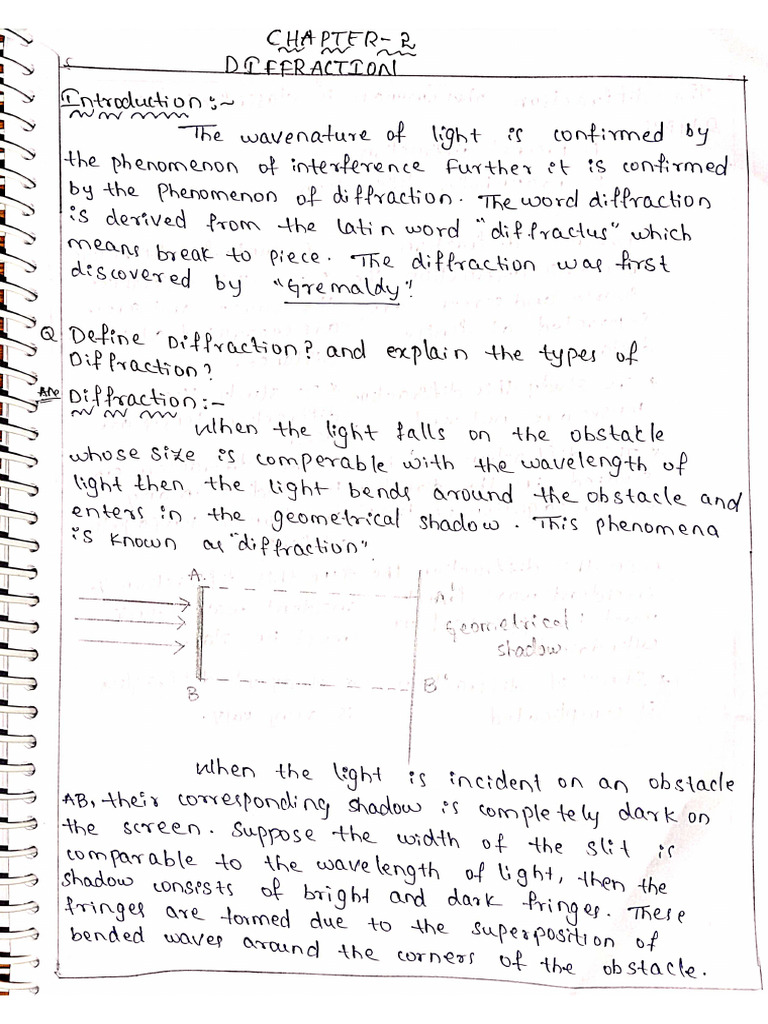 CHAPTER-2
DIFFRACTION
Introduction:~
The wavenature of light is confirmed by
the phenomenon of interference further it is confirmed
by the Phenomenon of diffraction. The word diffraction
is derived from the latin word "diffractus" which
means break to piece. The diffraction was first
discovered by "Gremaldy".
Q Define Diffraction? and explain the types of
Diffraction?
Ans Diffraction:-
When the light falls on the obstacle
whose size is comperable with the wavelength of
light then the light bends around the obstacle and
enters in the geometrical shadow. This phenomena
is known as "diffraction".
A
A'
Geometrical
shadow
B
B'
When the light is incident on an obstacle
AB, their corresponding shadow is completely dark on
the screen. Suppose the width of the slit is
comparable to the wavelength of light, then the
shadow consists of bright and dark fringes. These
fringes are formed due to the superposition of
bended waves around the corners of the obstacle.